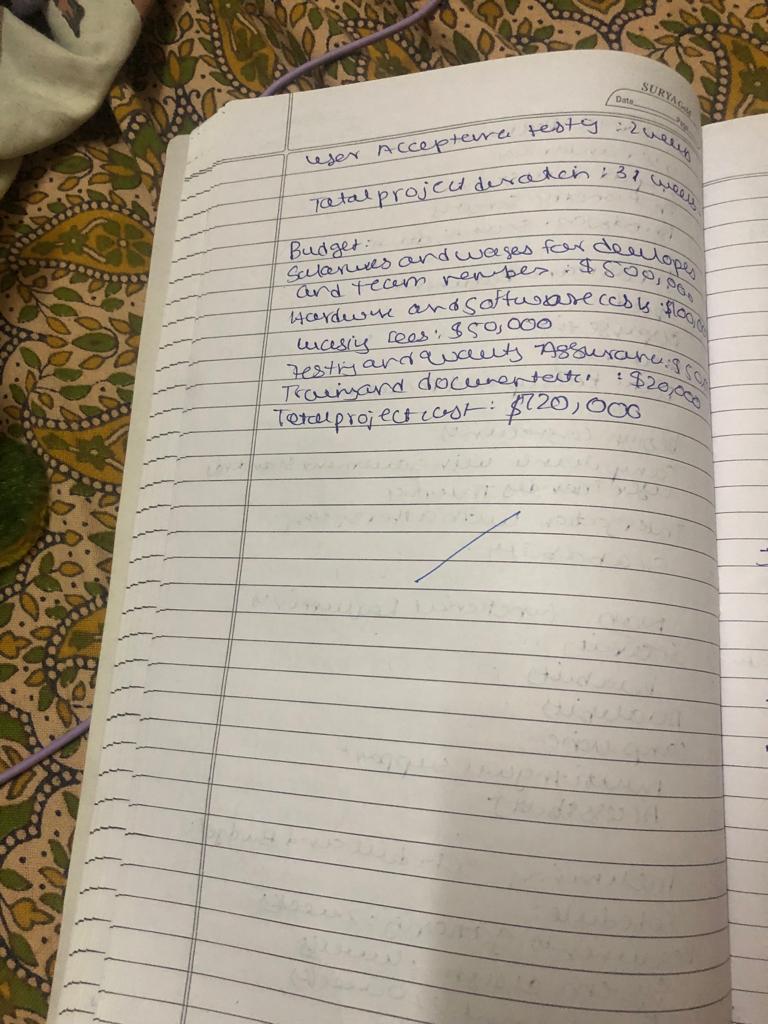 SURYA Gold
Date
User Acceptance testg : 2 weeks
Total project duration : 38 weeks
Budget:
Salaries and wages for developer
and team member : $500,000
Hardware and software costs : $100,00
fees : $50,000
Testing and Quality Assurance : $50,
Training and documentatn : $20,000
Total project cost : $720,000